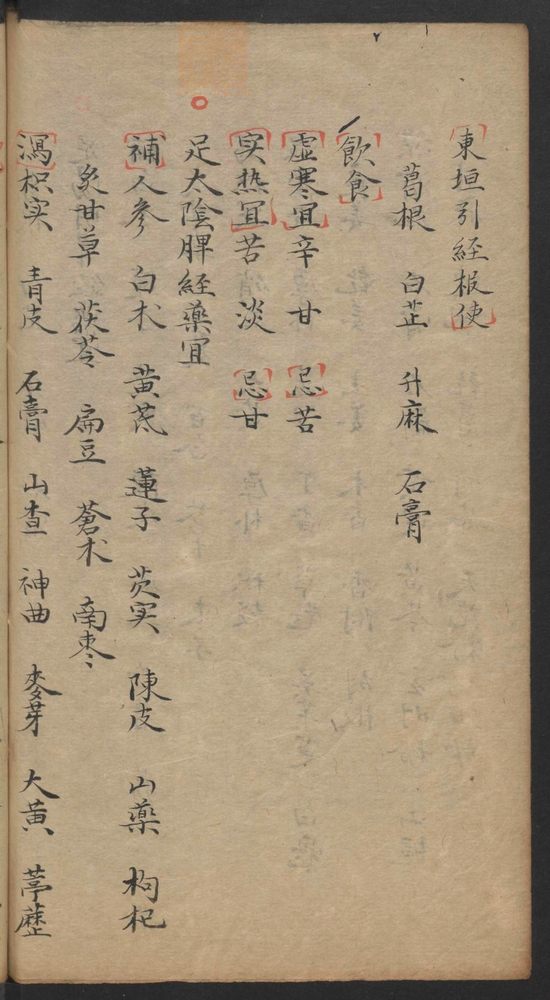 東垣引経报使
葛根 白芷 升麻 石膏
飲食
虚寒宜辛甘 忌苦
实热宜苦淡 忌甘
足太陰脾経藥宜
補人參 白朮 黄芪 蓮子 芡实 陳皮 山藥 枸杞
炙甘草 茯苓 扁豆 蒼朮 南枣
瀉枳实 青皮 石膏 山查 神曲 麥芽 大黄 葶藶